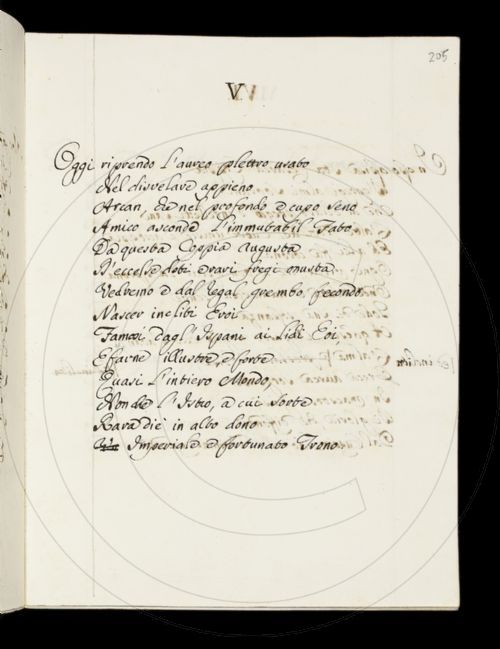 205
V
Oggi riprendo l'aureo plettro usato
Nel disvelare appieno
Arcan, che nel profondo e cupo seno
Amico asconde l'immutabil Fato.
Da questa Coppia Augusta
D'eccelse doti e rari fregi onusta
Vedremo e dal Regal grembo fecondo
Nascer incliti Eroi
Famosi dagl' Ispani ai Lidi Eoi
E farne illustre, e forte
Quasi l'intiero Mondo,
Non che l'Istro, a cui sorte
Rara diè in alto dono
Imperiale e fortunato Trono